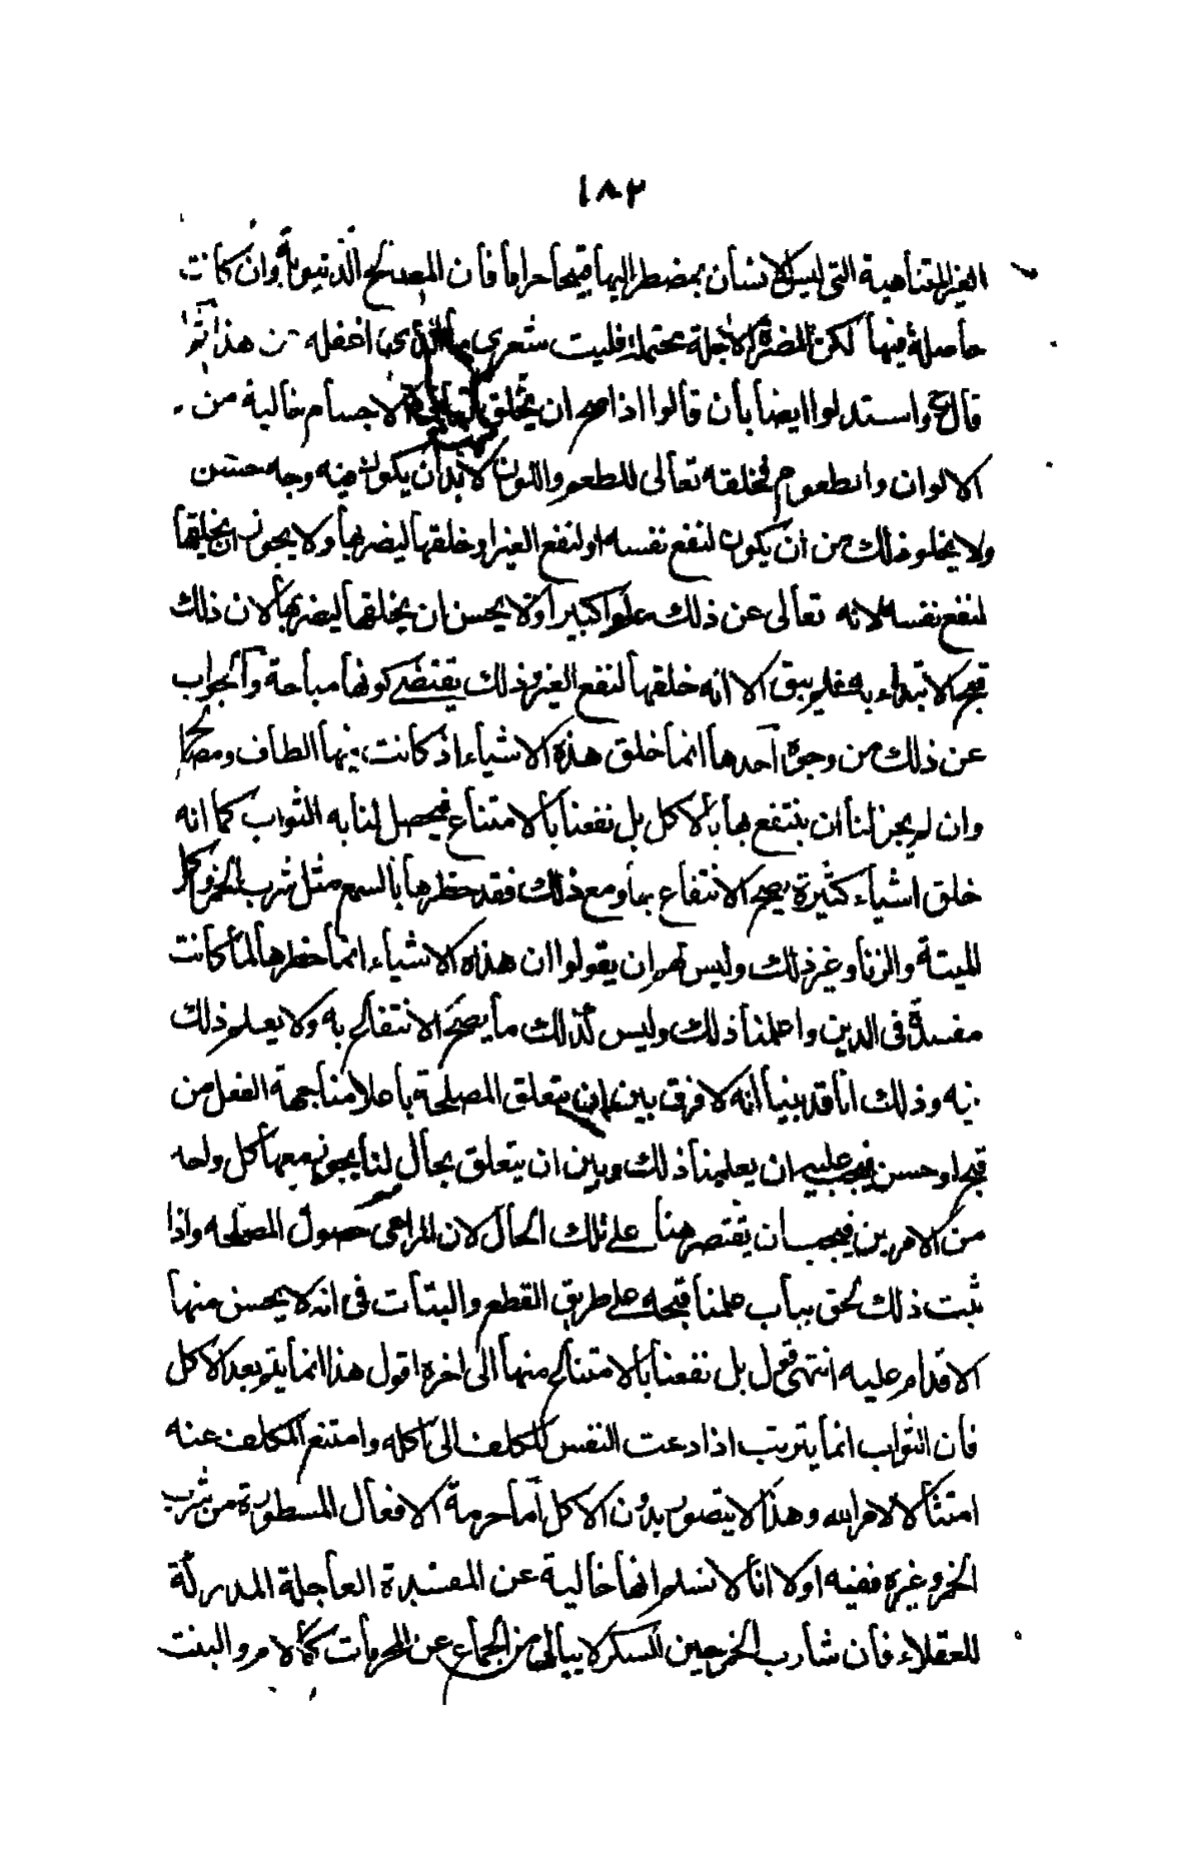 ١٨٢
الغير المتناهية التى ليس الانسان بمضطر اليها قبيحا حراما فان المصالح الدنيوية وان كانت
حاصلة فيها لكن المضرة الاجلة محتملة فليت شعرى ما الذى اغفله عن هذا ثم
قال واستدلوا ايضا بان قالوا اذا صح ان يخلق تعالى الاجسام خالية من
الالوان والطعوم فخلقه تعالى للطعم واللون لابد ان يكون فيه وجه حسن
ولا يخلو ذلك من ان يكون لنفع نفسه او لنفع الغير او خلقها ليضر بها ولا يجوز ان يخلقها
لنفع نفسه لانه تعالى عن ذلك علوا كبيرا ولا يحسن ان يخلقها ليضر بها لان ذلك
قبيح الابتداء به فلم يبق الا انه خلقها لنفع الغير وذلك يقتضى كونها مباحة والجواب
عن ذلك من وجوه احدها انما خلق هذه الاشياء اذ كانت فيها الطاف ومصالح
وان لم يجز لنا ان ينتفع بها بالاكل بل نفعنا بالامتناع فيحصل لنا به الثواب كما انه
خلق اشياء كثيرة يصح الانتفاع بها ومع ذلك فقد حظرها بالسمع مثل شرب الخمر واكل
الميتة والزنا وغير ذلك وليس لهم ان يقولوا ان هذه الاشياء انما حظرها لما كانت
مفسدة فى الدين واعلمنا ذلك وليس كذلك ما يصح الانتفاع به ولا يعلم ذلك
فيه وذلك انا قد بينا انه لا فرق بين ان يتعلق المصلحة باعلامنا جهة الفعل من
قبح او حسن فيجب عليه ان يعلمنا ذلك وبين ان يتعلق بحال لنا يجوز معها كل واحد
من الامرين فيجب ان يقتصر هنا على تلك الحال لان المراعى حصول المصلحة واذا
ثبت ذلك لحق بباب علمنا قبحه على طريق القطع والبتات فى انه لا يحسن منها
الاقدام عليه انتهى قول بل نفعنا بالامتناع منها الى اخره اقول هذا انما يتم بعد الاكل
فان الثواب انما يترتب اذا دعت النفس للمكلف الى اكله وامتنع المكلف عنه
امتثالا لامر الله وهذا لا يتصور بدون الاكل اما حرمة الافعال المسطورة من شرب
الخمر وغيره ففيه اولا انا لا نسلم انها خالية عن المفسدة العاجلة المدركة
للعقلاء فان شارب الخمر حين السكر لا يبالى من الجماع عن المحرمات كالام والبنت